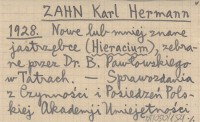 ZAHN Karl Hermann
1928. Nowe lub mniej znane
jastrzębce (Hieracium), zebra-
ne przez Dr. B. Pawłowskiego
w Tatrach. — Sprawozdania
z Czynności i Posiedzeń Pols-
kiej Akademji Umiejętności